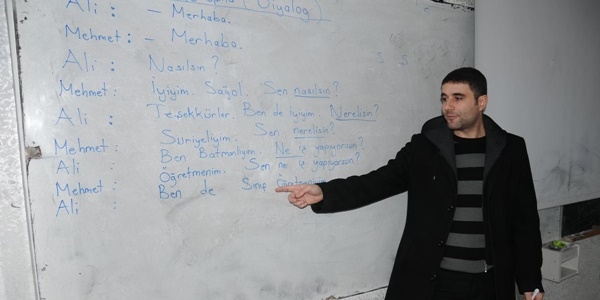 (Diyalog)
Ali : - Merhaba.
Mehmet: - Merhaba.
Ali : Nasılsın?
Mehmet: İyiyim. Sağol. Sen nasılsın?
Ali : Teşekkürler. Ben de iyiyim. Nerelisin?
Mehmet: Suriyeliyim. Sen nerelisin?
Ali : Ben Batmanlıyım. Ne iş yapıyorsun?
Mehmet: Öğretmenim. Sen ne iş yapıyorsun?
Ali : Ben de Sınıf